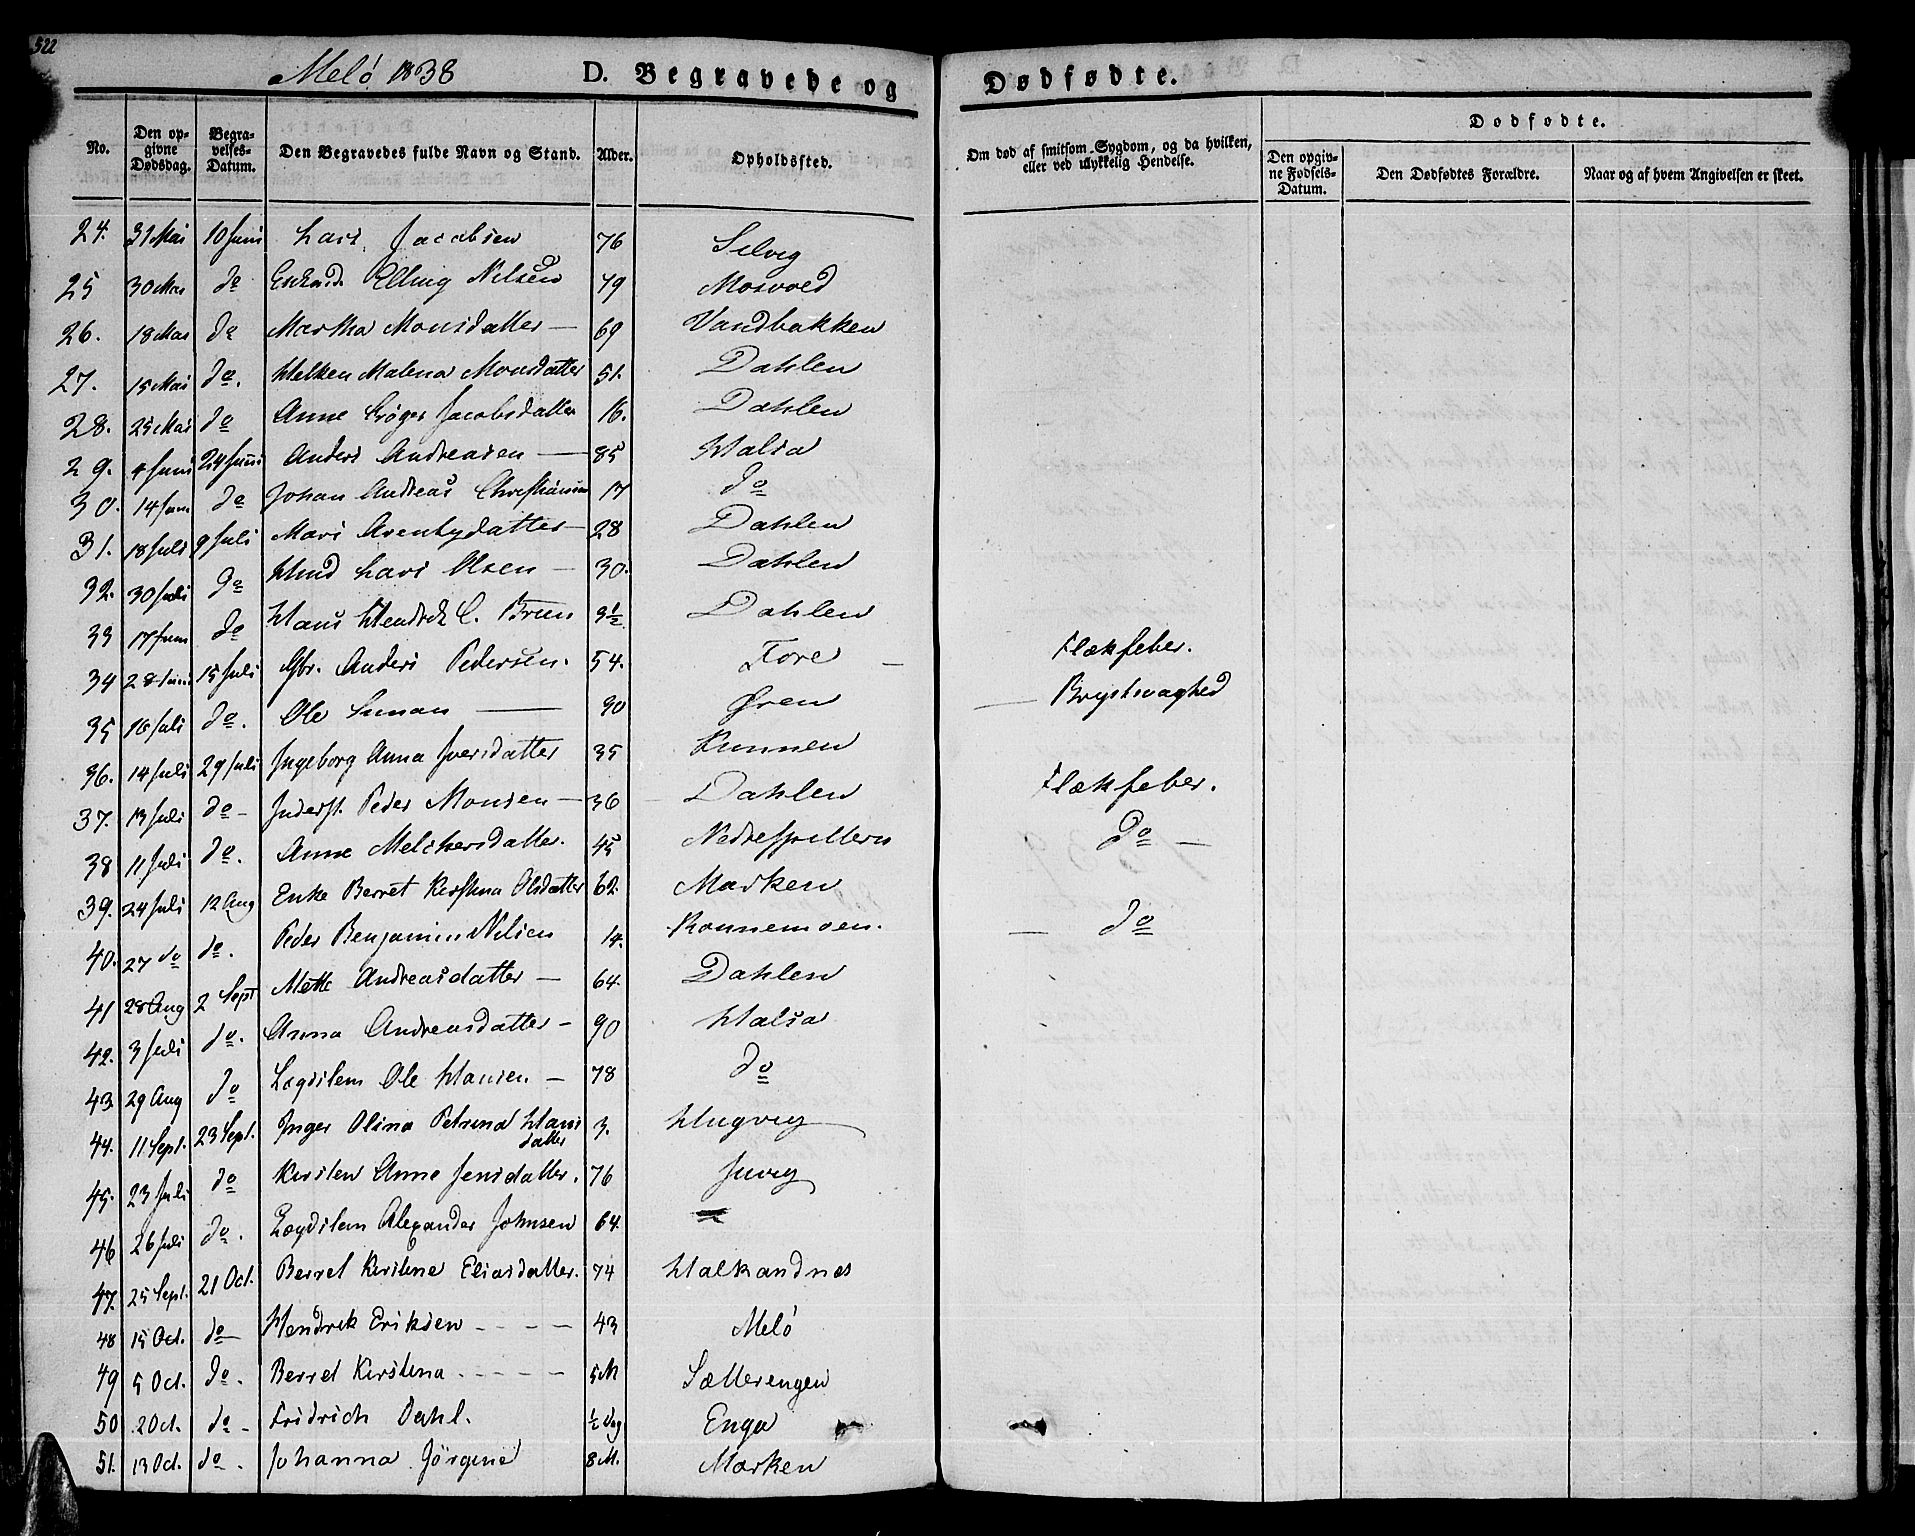 522
Melö 1838 D. Begravede og Dødfødte.
No. Den opgivne Dødsdag. Begravelses-Datum. Den Begravedes fulde Navn og Stand. Alder. Opholdssted. Om død af smitsom Sygdom, og da hvilken, eller ved ulykkelig Hendelse. Dødfødte. Den opgivne Fødsels-Datum. Den Dødfødtes Forældre. Naar og af hvem Angivelsen er skeet.
24. 31 Mai 10 Juni Lars Jacobsen 76 Selvig
25 30 Mai do Elling Nilsen 79 Mosvold
26. 18 Mai do Martha Monsdatter — 69 Vandbakken
27. 15 Mai do. Helken Malena Monsdatter 51. Dahlen
28. 25 Mai do Anne Jacobsdatter 16. Dahlen
29. 4 Juni 24 Juni Anders Andreasen — 85 Halsa
30. 14 Juni do Johan Andreas Christiansen 17 do
31. 18 Juli 9 Juli Mari Arentzdatter — 28 Dahlen
32. 30 Juli do Hmd Lars Olsen — 30. Dahlen
33 17 Juni do Hans Hendrik C. Bruun 3½ Dahlen
34 28 Juni 15 Juli Gbr. Anders Pedersen. 54. Fore — Flækfeber.
35 16 Juli do. Ole Simon — 90 Øren — Brystsvaghed
36. 14 Juli 29 Juli Ingeborg Anna Iversdatter 35 Kunnen
37. 13 Juli do — Inderst. Peder Monsen — 36 Dahlen Flækfeber.
38 11 Juli do. Anne Melchersdatter. 45 Nedrespilderen do —
39. 24 Juli 12 Aug Enke Berret Kirstina Olsdatter 62. Marken
40. 27 do do. Peder Benjamin Nilsen 14. Konnemoen. — do
41 28 Aug 2 Sept Mette Andreasdatter — 64. Dahlen
42. 3 Juli do. Anna Andreasdatter — 90 Halsa
43 29 Aug do Lægdslem Ole Hansen — 78 do
44. 11 Sept. 23 Sept. Inger Olina Petrina Hansdatter 3. Hugvig
45. 23 Juli do Kirsten Anne Jensdatter. 76 Juvig
46 26 Juli do. Lægdslem Alexander Johnsen 64.
47. 25 Sept. 21 Oct. Berret Kirstene Eliasdatter. 74 Halkandnes
48 15 Oct. do — Hendrik Eriksen - - - - 43 Melö
49 5 Oct. do. Berret Kirstina - - - - - 5 M Sætterengen
50 2 Oct. do — Fridrich Dahl. ½ Dag Enga
51. 13 Oct. do. Johanna Jörgine 8 M. Marken